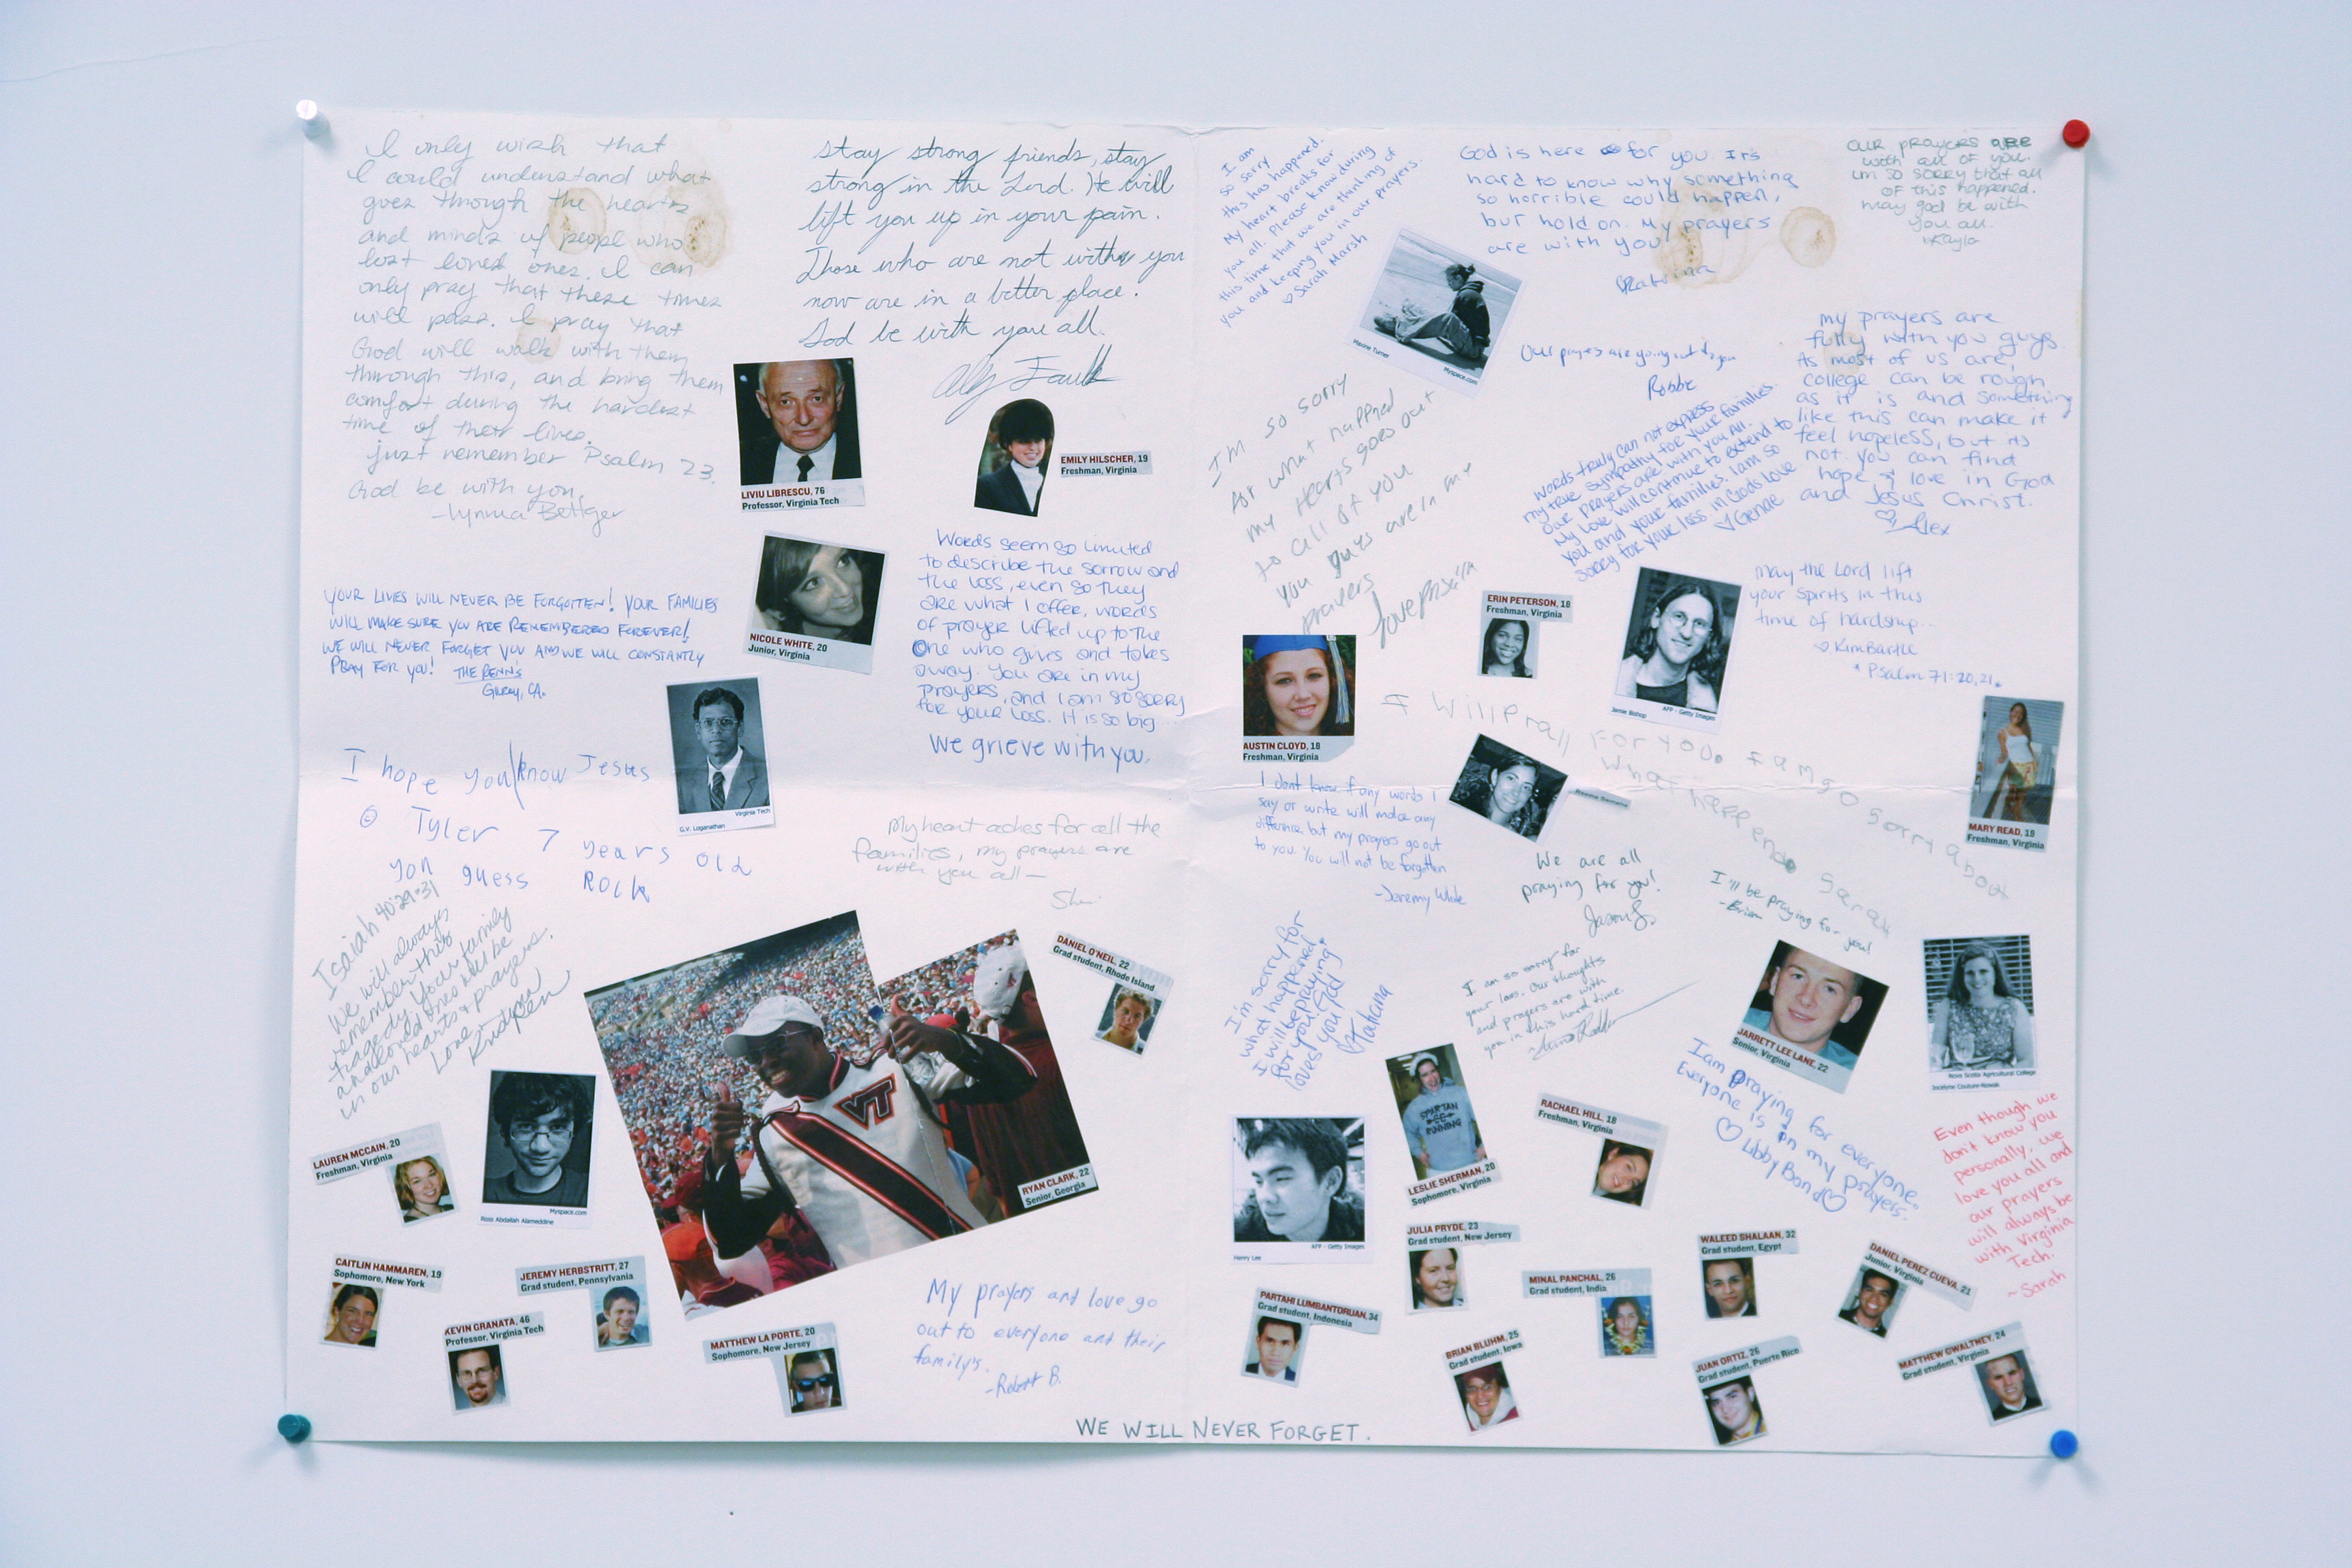 I only wish that
I could understand what
goes through the hearts
and minds of people who
lost loved ones. I can
only pray that these times
will pass. I pray that
God will walk with them
through this, and bring them
comfort during the hardest
time of their lives.
just remember Psalm 23.
God be with you,
stay strong friends, stay
strong in the Lord. He will
lift you up in your pain.
Those who are not with you
now are in a better place.
God be with you all.
LIVIU LIBRESCU, 76
Professor, Virginia Tech
EMILY HILSCHER, 19
Freshman, Virginia
NICOLE WHITE, 20
Junior, Virginia
YOUR LIVES WILL NEVER BE FORGOTTEN! YOUR FAMILIES
WILL MAKE SURE YOU ARE REMEMBERED FOREVER!
WE WILL NEVER FORGET YOU AND WE WILL CONSTANTLY
PRAY FOR YOU! THE PENN'S
Gilroy, CA.
Words seem so limited
to describe the sorrow and
the loss, even so they
are what I offer, words
of prayer lifted up to the
One who gives and takes
away. You are in my
prayers, and I am so sorry
for your loss. It is so big...
We grieve with you.
Virginia Tech
G.V. Loganathan
I hope you know Jesus
Tyler 7 years old
you guess Rock
My heart aches for all the
families, my prayers are
with you all—
Isaiah 40:29-31
We will always
remember this
tragedy. Your family
and loved ones will be
in our hearts & prayers.
Love
DANIEL O'NEIL, 22
Grad student, Rhode Island
VT
RYAN CLARK, 22
Senior, Georgia
LAUREN MCCAIN, 20
Freshman, Virginia
Myspace.com
Ross Abdallah Alameddine
CAITLIN HAMMAREN, 19
Sophomore, New York
JEREMY HERBSTRITT, 27
Grad student, Pennsylvania
KEVIN GRANATA, 46
Professor, Virginia Tech
MATTHEW LA PORTE, 20
Sophomore, New Jersey
My prayers and love go
out to everyone and their
family's.
-Robert B.
I am
so sorry
this has happened.
My heart breaks for
you all. Please know during
this time that we are thinking of
you and keeping you in our prayers.
♡ Sarah Marsh
God is here for you. It's
hard to know why something
so horrible could happen,
but hold on. My prayers
are with you!
Katrina
OUR PRAYERS ARE
with all of you.
im so sorry that all
of this happened.
may god be with
you all.
Kayla
Maxine Turner
Myspace.com
Our prayers are going out to you
Robbe
my prayers are
fully with you guys.
As most of us are,
college can be rough
as it is and something
like this can make it
feel hopeless, but its
not. you can find
hope & love in God
and Jesus Christ.
♡ Alex
I'm so sorry
for what happned
my hearts goes out
to all of you
you guys are in my
prayers
Words truly can not express
my true sympathy for your families.
Our prayers are with you all.
My love will continue to extend to
you and your families. I am so
sorry for your loss. In Gods Love
ERIN PETERSON, 18
Freshman, Virginia
AFP - Getty Images
Jamie Bishop
May the Lord lift
your spirits in this
time of hardship...
♡ Kim Bartle
* Psalm 71:20,21.
AUSTIN CLOYD, 18
Freshman, Virginia
I will Prall for you. I am so sorry about
what happend. Sarah
MARY READ, 19
Freshman, Virginia
I dont know if any words I
say or write will make any
difference but my prayers go out
to you. You will not be forgotten
-Jeremy White
We are all
praying for you!
Jason S.
I'll be praying for you!
-Brian
I'm sorry for
what happened
I will be praying
for you. God
loves you
♡ Tatiana
I am so sorry for
your loss. Our thoughts
and prayers are with
you in this hard time.
JARRETT LEE LANE, 22
Senior, Virginia
Nova Scotia Agricultural College
Jocelyne Couture-Nowak
I am praying for everyone.
Everyone is in my prayers.
♡ Libby Band ♡
Even though we
don't know you
personally, we
love you all and
our prayers
will always be
with Virginia
Tech.
~Sarah
AFP - Getty Images
Henry Lee
SPARTAN
RUNNING
LESLIE SHERMAN, 20
Sophomore, Virginia
RACHAEL HILL, 18
Freshman, Virginia
JULIA PRYDE, 23
Grad student, New Jersey
WALEED SHALAAN, 32
Grad student, Egypt
DANIEL PEREZ CUEVA, 21
Junior, Virginia
MINAL PANCHAL, 26
Grad student, India
PARTAHI LUMBANTORUAN, 34
Grad student, Indonesia
BRIAN BLUHM, 25
Grad student, Iowa
JUAN ORTIZ, 26
Grad student, Puerto Rico
MATTHEW GWALTNEY, 24
Grad student, Virginia
WE WILL NEVER FORGET.